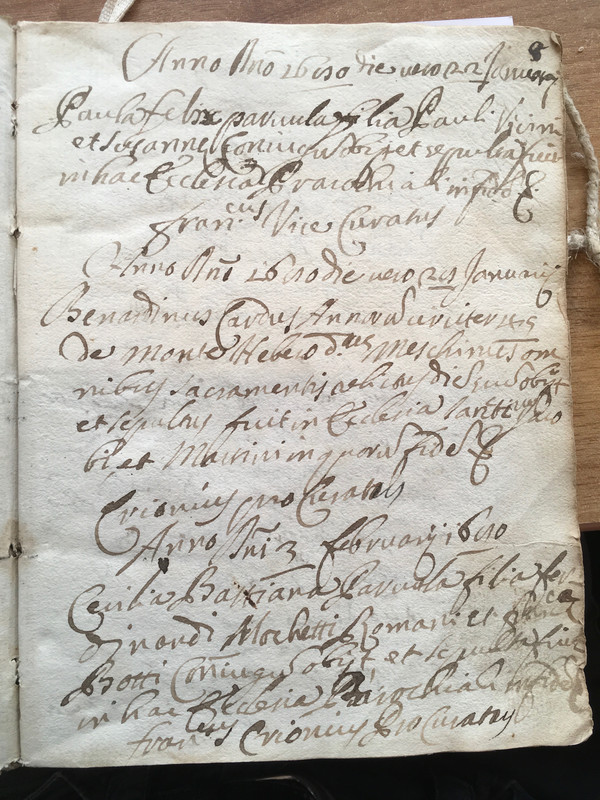 8
Anno Dnō 1650 die vero 22 Januarij
Paula felix parvula filia Pauli
et Susanne Coniugū obijt et sepulta fuit
in hac Ecclesia Parochiali in fidē &
fran.cus Vice Curatus
Anno Dnī 1650 die vero 29 Januarij
Benardinus Annorū circiter
de Monte om
nibus sacramentis die obijt
et sepultus fuit in Ecclesia Sanctorum Jaco
bi, et Martini in quorū fidē &
Crionius pro Curatus
Anno Dnī 3 february 1650
Cecilia Bastiana Parvula filia fer
dinandi Mochetti Romani et
Botti Coniugū obijt, et sepulta fuit
in hac Ecclesia Parochiali In fidē &
fran.cus Crionius Pro Curatus